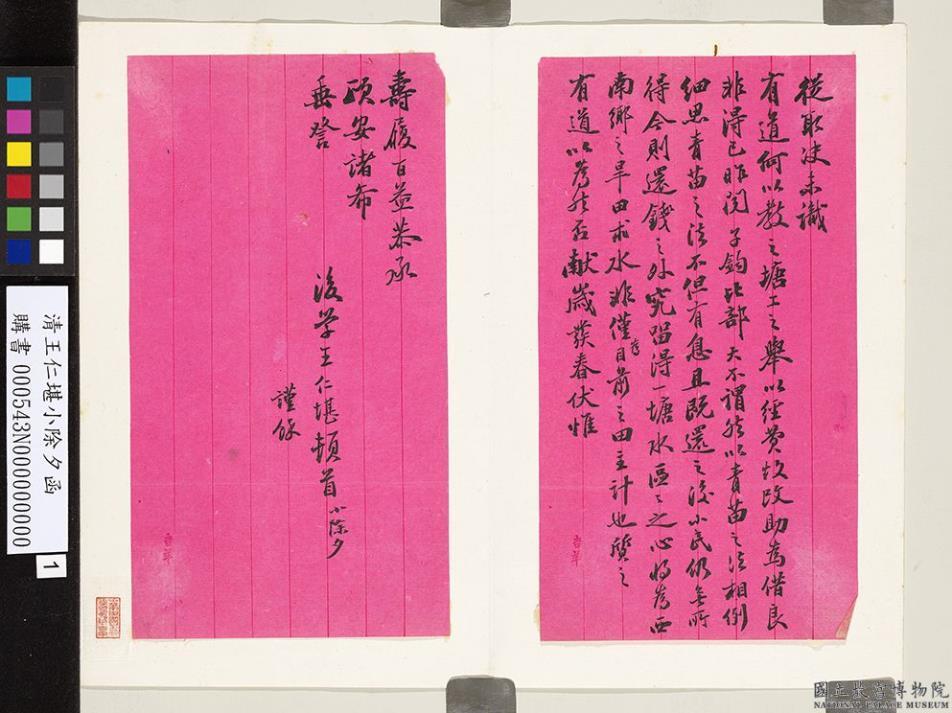 從取決未識
有道何以教之塘工之舉以經費故改助為借良
非得已昨閱子鈞比部大不謂然以青苗之法相例
細思青苗之法不但有息且既還之後小民仍無所
得今則還錢之外究留得一塘水區區之心將為西
南鄉之旱田求水非僅為目前之田主計也質之
有道以為然否獻歲發春伏惟
壽履百益恭承
頤安諸布
垂詧
後學王仁堪頓首小除夕
謹餘
清王仁堪小除夕函
購書 000543N000000000
1
國立故宮博物院
NATIONAL PALACE MUSEUM